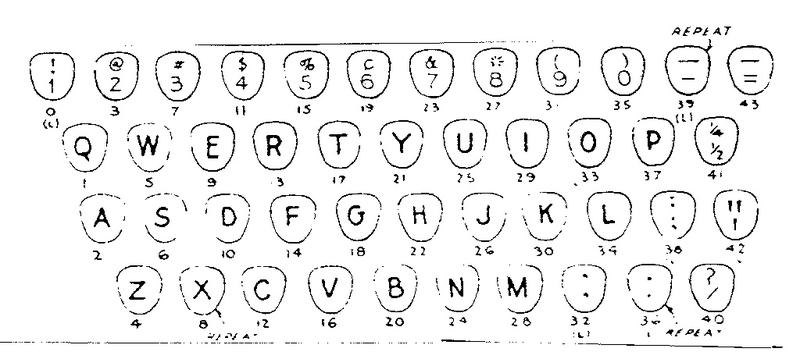 REPEAT
! @ # $ % ¢ & * ( ) — —
1 2 3 4 5 6 7 8 9 0 - =
0 3 7 11 15 19 23 27 35 39 43
(L) (L)
Q W E R T Y U I O P ¼
½
1 5 9 17 21 25 29 33 37 41
A S D F G H J K L : "
; '
2 6 10 14 18 22 26 30 34 38 42
Z X C V B N M . . ?
, . /
4 8 12 16 20 24 28 32 36 40
REPEAT (L) REPEAT